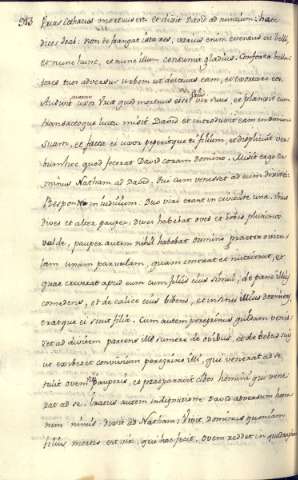 583 Urias Ethaeus mortuus est. et dixit David ad nuntium: haec
dices Ioab: non te frangat ista res, varius enim eventus est belli,
et nunc hunc, et nunc illum consumit gladius. Conforta bella-
tores tuos adversus urbem ut destruas eam, et exortare eos.
Audivit uxor Uriae quod mortuus esset vir suus, et planxit eum
transactoque luctu misit David et introduxit eam in domum
suam, et facta est uxor peperitque ei filium, et displicuit ver-
bum hoc quod fecerat David coram domino. Misit ergo Do-
minus Nathan ad David. Qui cum venisset ad eum dixit ei:
Responde iudicium. Duo viri erant in civitate una. Unus
dives et alter pauper. dives habebat oves et boves plurimos
valde, pauper autem nihil habebat omnino praeter ovem
unam parvulam, quam emerat et nutrierat, et
quae creverat apud eum cum filiis eius simul, de pane illius
comedens, et de calice eius bibens, et in sinu illius dormiens,
eratque ei sicut filia. Cum autem peregrinus quidam venis-
set ad divitem parcens ille sumere de ovibus, et de bobus suis
ut exhiberet convivium peregrino illi, qui venerat ad se,
tulit ovem Pauperis, et praeparavit cibos homini qui vene-
rat ad se. Iratus autem indignatione David adversum homi-
nem nimis: dixit ad Natham: Vivit dominus quoniam
filius mortis est vir, qui hoc fecit. Ovem reddet in quadruplum